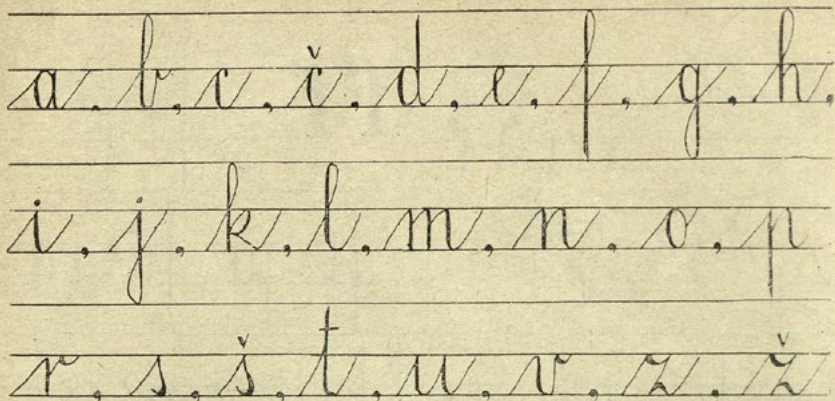 a, b, c, č, d, e, f, g, h,
i, j, k, l, m, n, o, p
r, s, š, t, u, v, z, ž